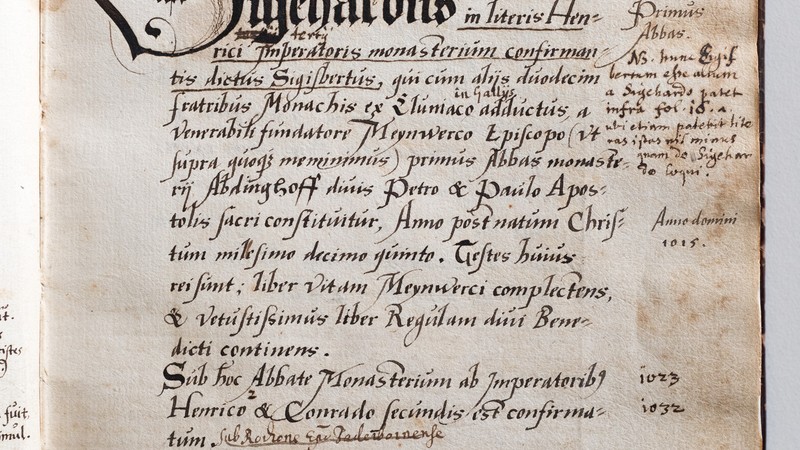 Sigehardus in literis Hen-
tertij
rici Imperatoris monasterium confirman-
tis dictus Sigisbertus, qui cum alijs duodecim
in Gallijs
fratribus Monachis ex Cluniaco adductus a
Venerabili fundatore Meynwerco Episcopo (vt
supra quoqȝ meminimus) primus Abbas monaste-
rij Abdinghoff diuis Petro & Paulo Apos-
tolis sacri constituitur, Anno post natum Chris-
tum millesimo decimo quinto. Testes huius
rei sunt; liber vitam Meynwerci complectens,
& vetustissimus liber Regulam diui Bene-
dicti continens.
Sub hoc Abbate Monasterium ab Imperatoribꝰ
Henrico 2 & Conrado secundis est confirma-
tum. Sub Epo Paderbornense
Primus
Abbas.
NB. hunc Sigis
bertum esse alium
a Sigehardo patet
infra fol. 16. a.
ubi etiam patebit lite
ras istas nil minus
quam de Sigehar
do loqui.
Anno domini
1015.
1023
1032
fuit